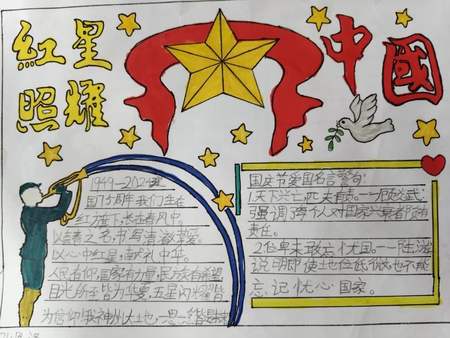 紅星
照耀
中
國
国庆节爱国名言警句:
1.天下兴亡,匹夫有责。——顾炎武:
强调了个人对国家兴衰有
责任。
2.位卑未敢忘忧国。——陆游
说明即使地位低微,也不能
忘记忧心国家。
1949—2024
国75周年我们生在
红旗下,长在春风中。
之名,书写清澈
以心中红星,献礼中华。
人民有信仰,国家有力量,民族有希望
目光所至皆为华夏,五星闪耀皆
为信仰 神州大地,